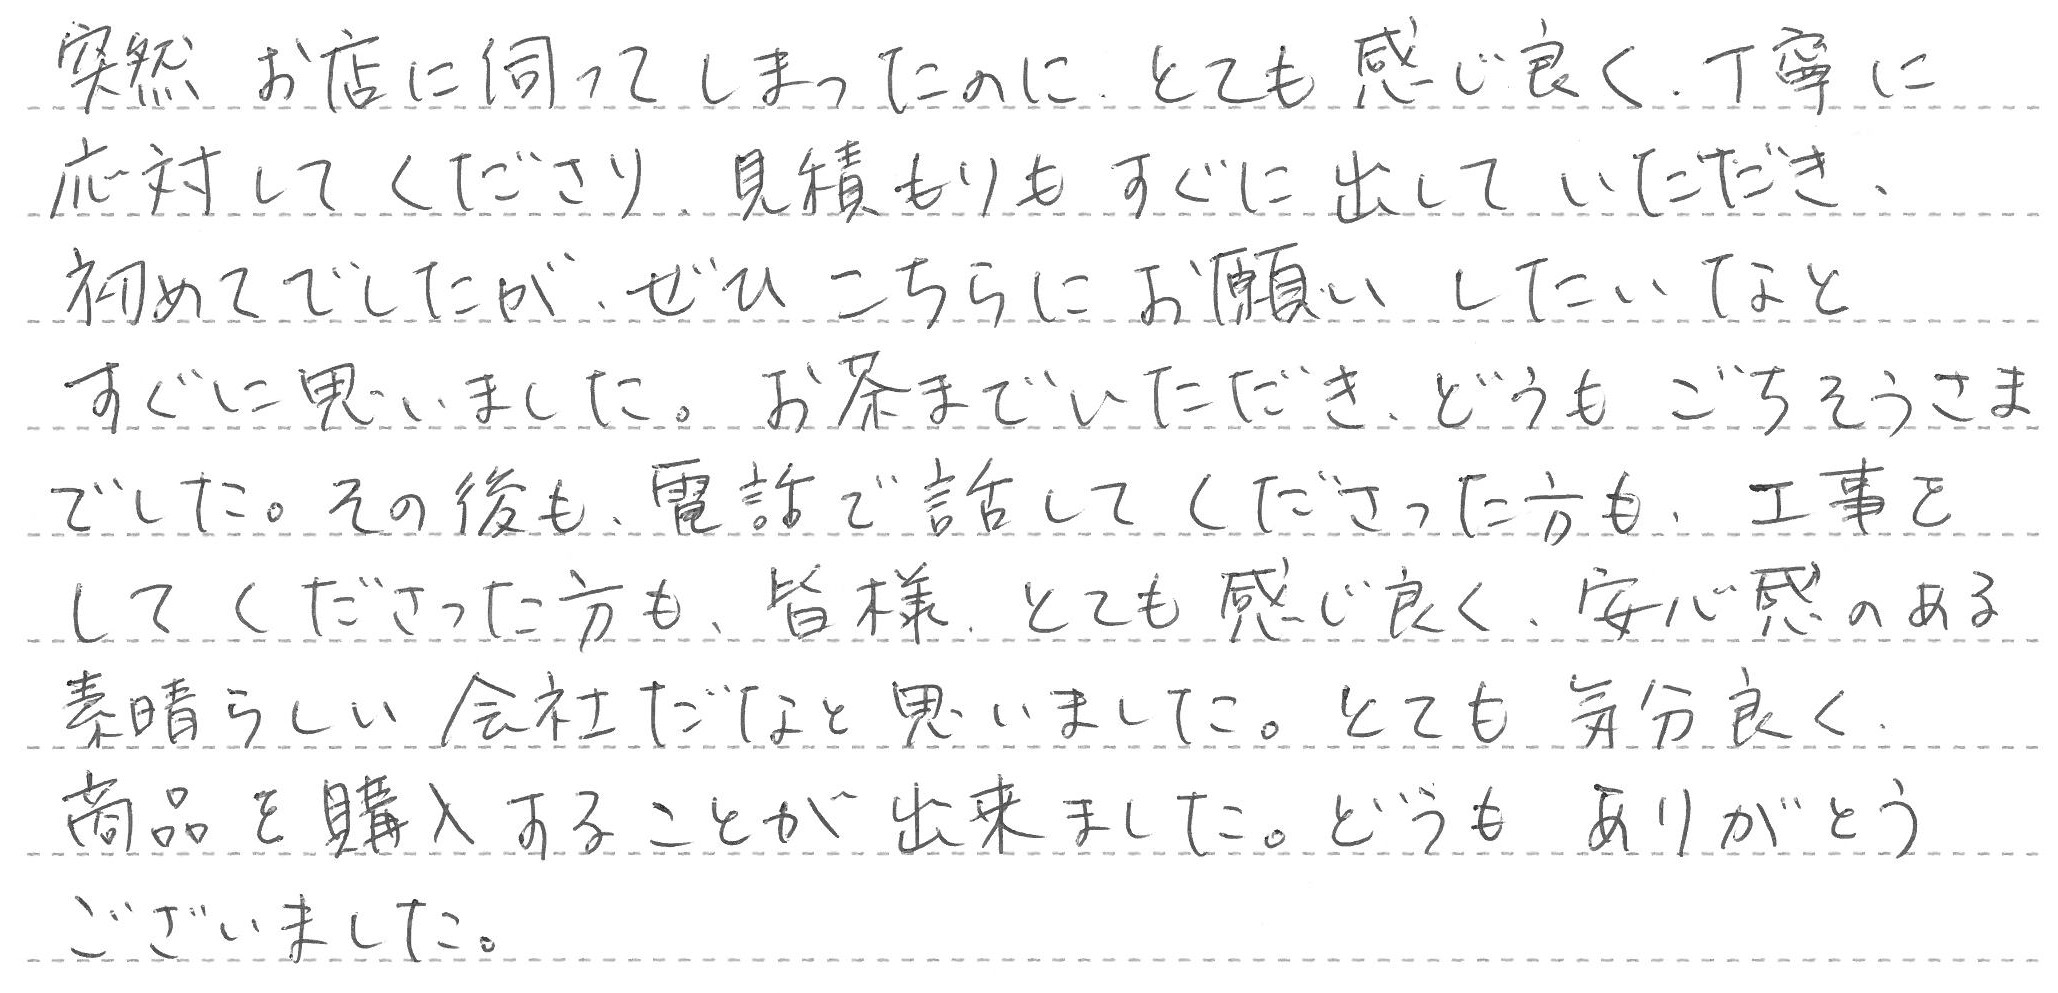 突然 お店に伺ってしまったのに、とても感じ良く、丁寧に
応対してくださり、見積もりもすぐに出していただき、
初めてでしたが、ぜひこちらにお願いしたいなと
すぐに思いました。お茶までいただき、どうもごちそうさま
でした。その後も、電話で話してくださった方も、工事を
してくださった方も、皆様、とても感じ良く、安心感のある
素晴らしい会社だなと思いました。とても気分良く、
商品を購入することが出来ました。どうもありがとう
ございました。